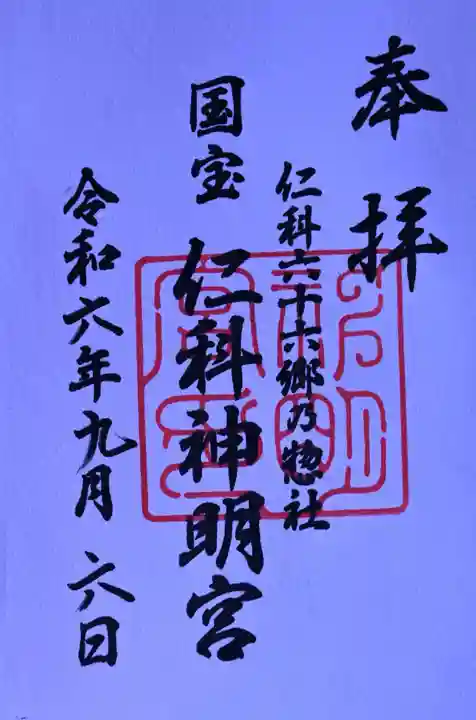 奉拝
仁科六十六郷乃惣社
国宝 仁科神明宮
令和六年九月六日